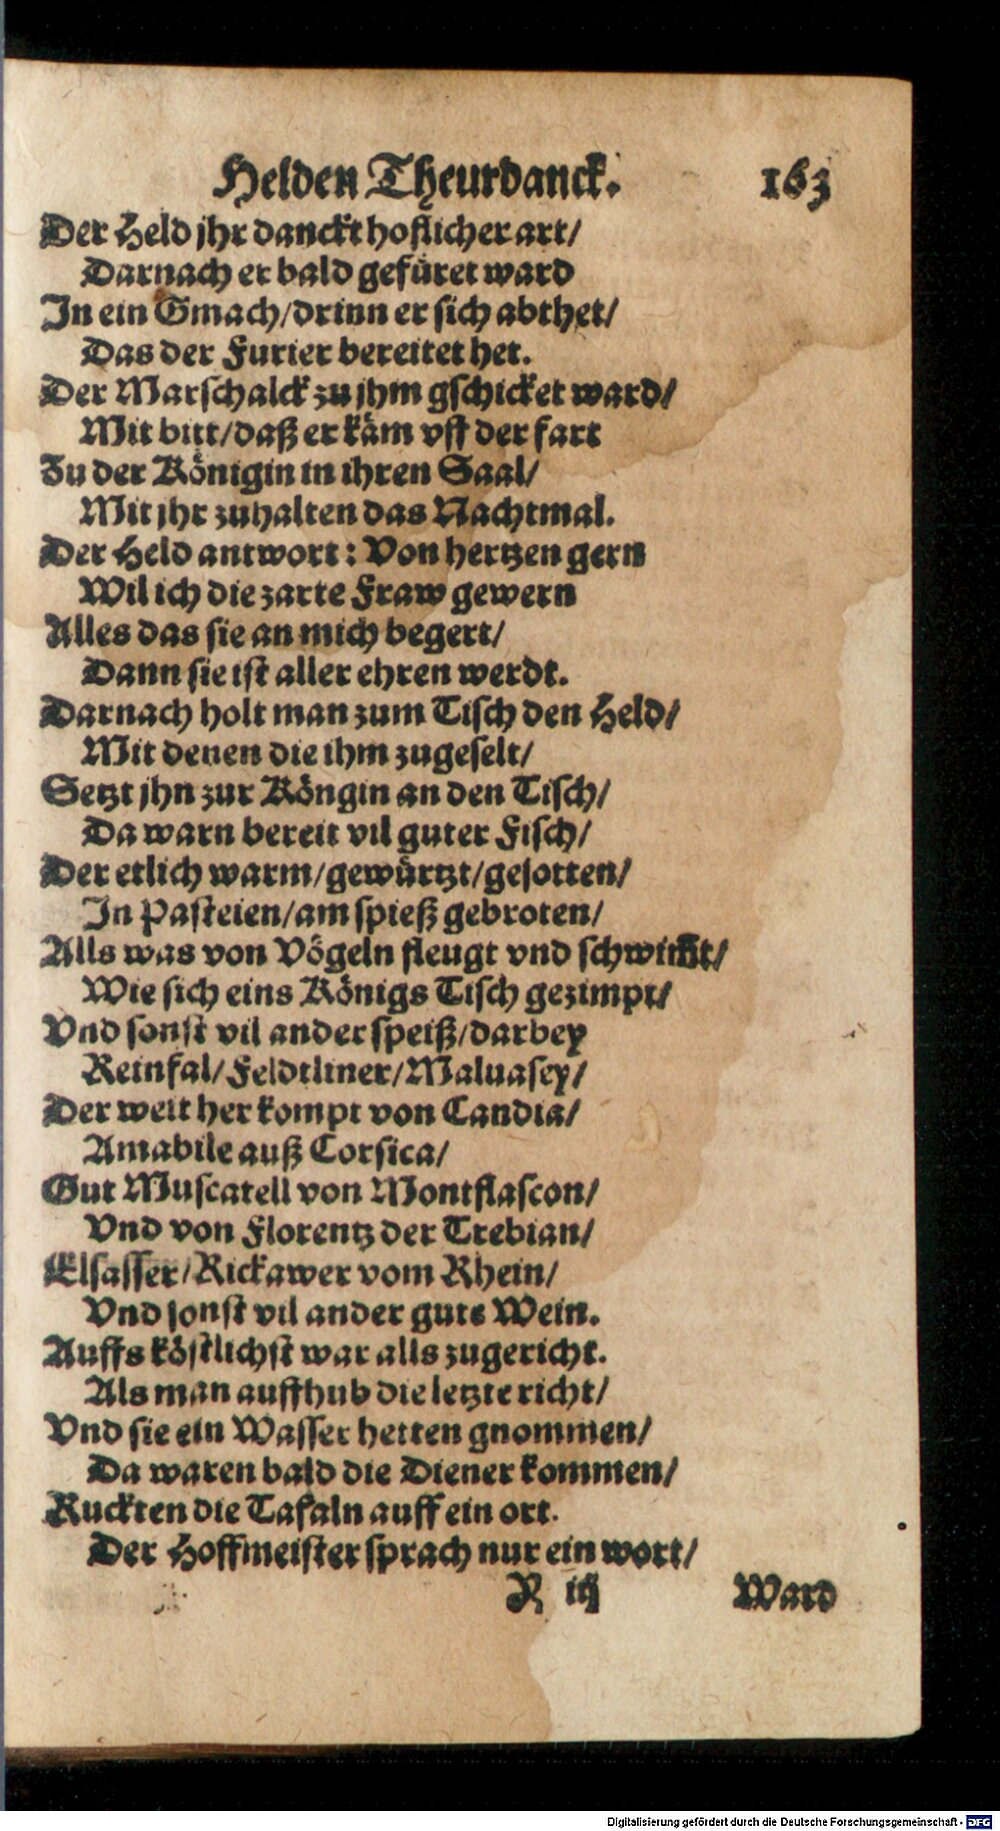 Helden Theurdanck. 163
Der Held jhr danckt hoflicher art/
Darnach er bald gefüret ward
In ein Gmach/drinn er sich abthet/
Das der Furier bereitet het.
Der Marschalck zu jhm gschicket ward/
Mit bitt/daß er käm vff der fart
Zu der Königin in ihren Saal/
Mit jhr zuhalten das Nachtmal.
Der Held antwort: Von hertzen gern
Wil ich die zarte Fraw gewern
Alles das sie an mich begert/
Dann sie ist aller ehren werdt.
Darnach holt man zum Tisch den Held/
Mit denen die ihm zugeselt/
Setzt jhn zur Köngin an den Tisch/
Da warn bereit vil guter Fisch/
Der etlich warm/gewürtzt/gesotten/
In Pasteien/am spieß gebroten/
Alls was von Vögeln fleugt vnd schwim̃t/
Wie sich eins Königs Tisch gezimpt/
Vnd sonst vil ander speiß/darbey
Reinfal/Feldtliner/Maluasey/
Der weit her kompt von Candia/
Amabile auß Corsica/
Gut Muscatell von Montflascon/
Vnd von Florentz der Trebian/
Elsasser/Rickawer vom Rhein/
Vnd sonst vil ander gute Wein.
Auffs köstlichst war alls zugericht.
Als man auffhub die letzte richt/
Vnd sie ein Wasser hetten gnommen/
Da waren bald die Diener kommen/
Ruckten die Tafaln auff ein ort.
Der Hoffmeister sprach nur ein wort/
R iij Ward
Digitalisierung gefördert durch die Deutsche Forschungsgemeinschaft - DFG